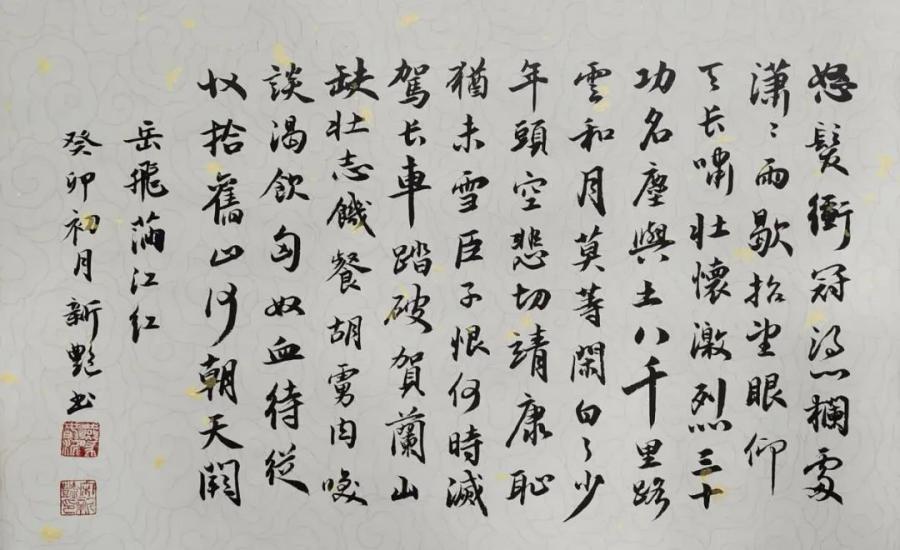 怒髮衝冠憑欄處
瀟々雨歇抬望眼仰
天长嘯壯懷激烈三十
功名塵與土八千里路
雲和月莫等閑白了少
年頭空悲切靖康恥
猶未雪臣子恨何時滅
駕长車踏破賀蘭山
缺壯志饑餐胡虜肉咲
談渴飲匈奴血待從
收拾舊山河朝天闕
岳飛滿江红
癸卯初月新艷书